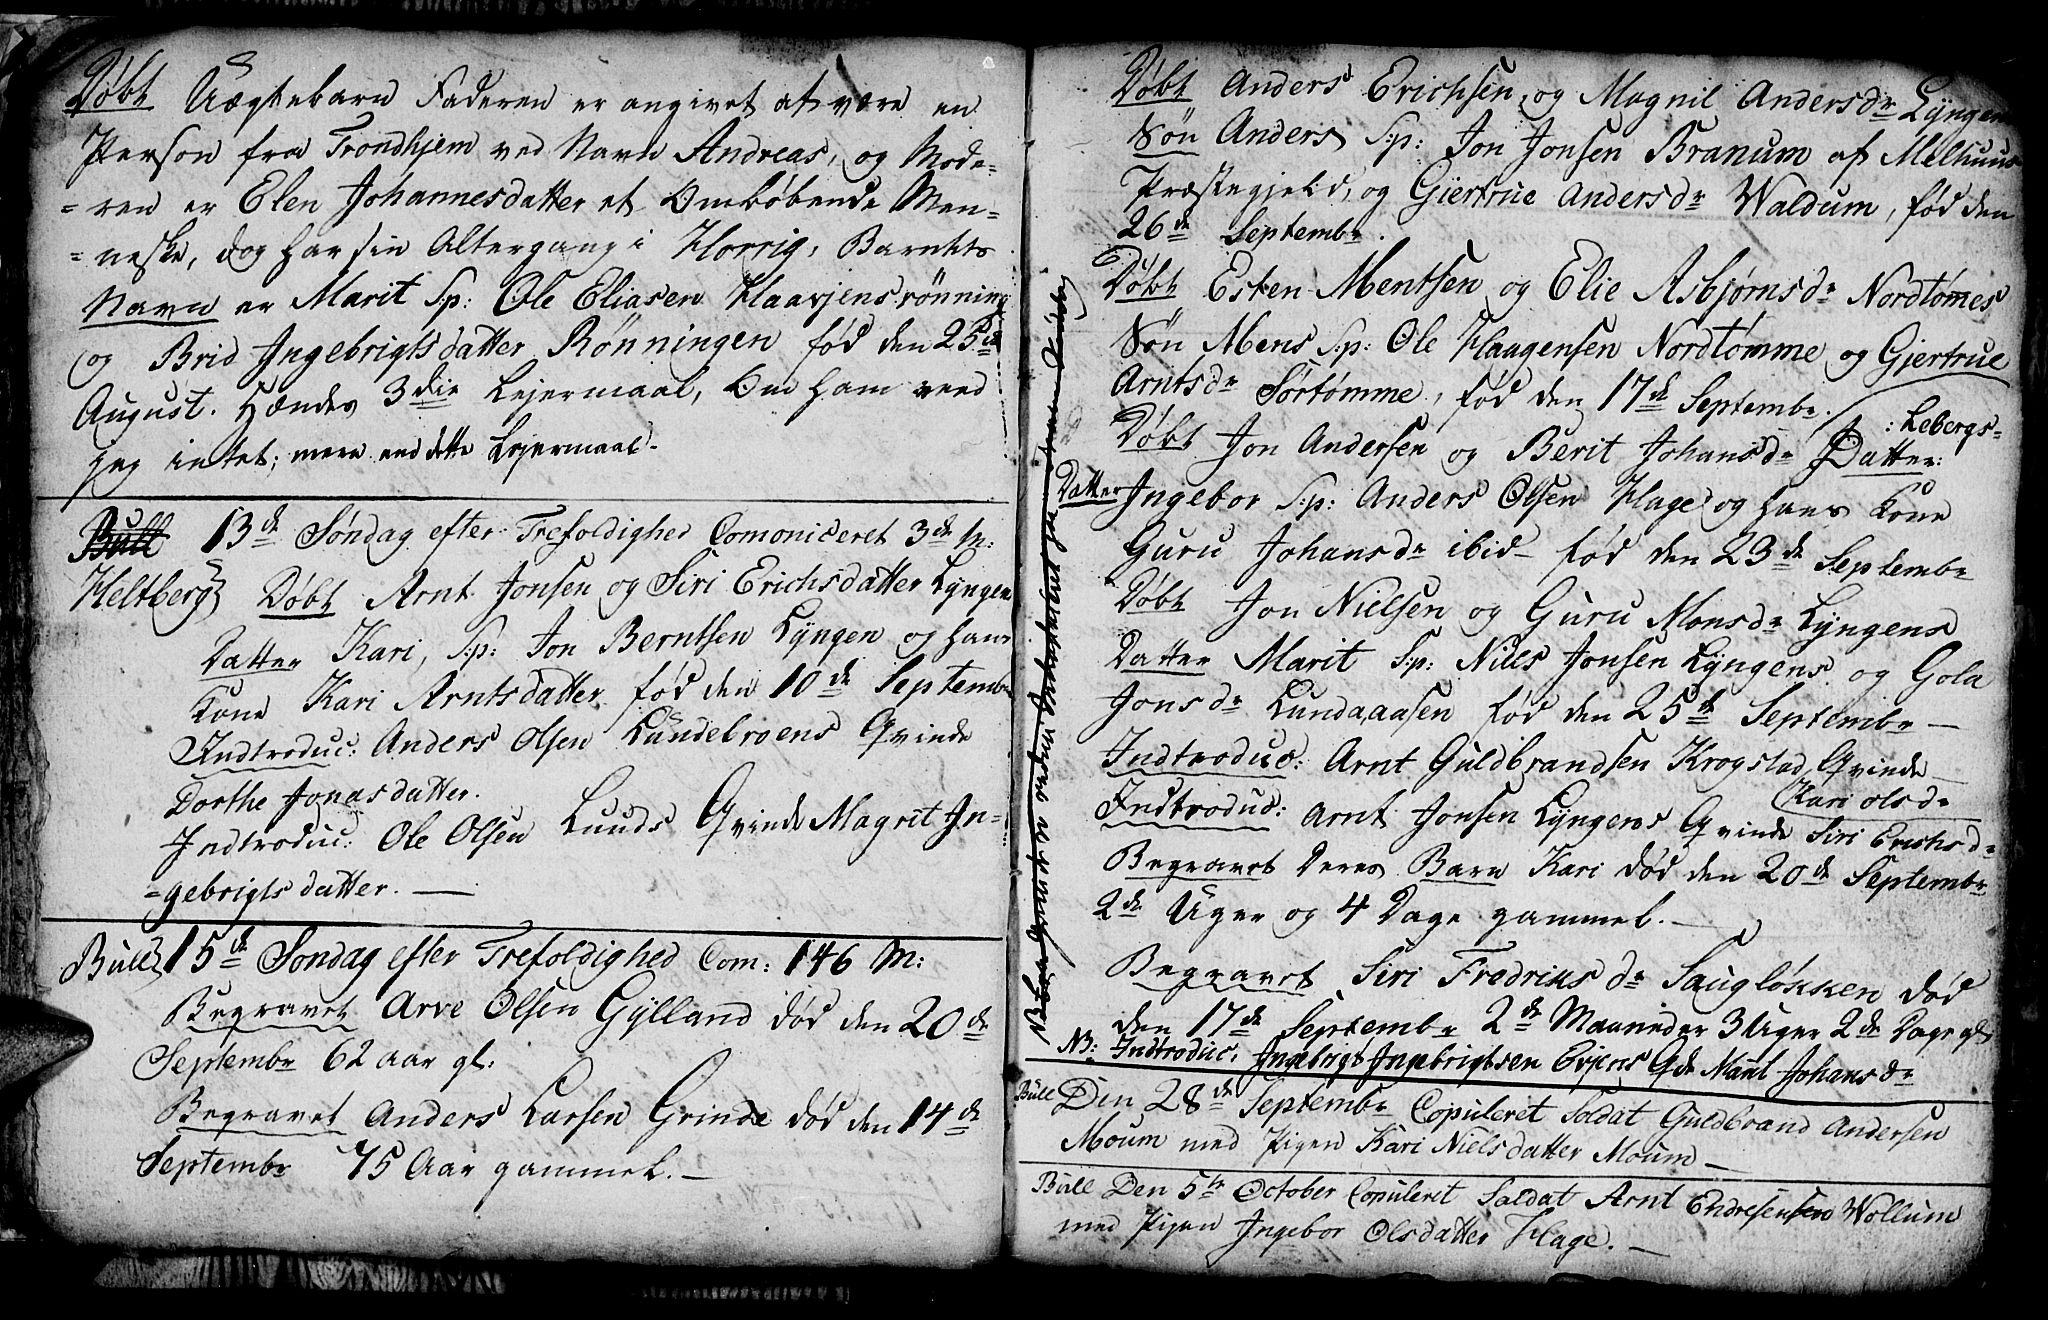 Døbt Uægtebarn Faderen er angivet at være en
Person fra Trondhjem ved Navn Andreas, og Mode-
=ren er Elen Johannesdatter et Omløbende Men-
=neske, dog har sin Altergang i Horrig, Barnets
Navn er Marit S:p: Ole Eliasen Haavjensrönning
og Brid Ingebrigtsdatter Rönningen fød den 25de
August. Hændes 3die Lejermaal, Om ham veed
jeg intet; mere end dette Lejermaal.
Büll 13de Søndag efter Trefoldighed Comoniceret 3de M:
Heltberg Døbt Arnt Jonsen og Siri Erichsdatter Lyngen
Datter Kari, S:p: Jon Berntsen Lyngen og hans
Kone Kari Arntsdatter fød den 10de Septembr
Indtroduc: Anders Olsen Lundebroens Qvinde
Dorthe Jonasdatter.
Indtroduc: Ole Olsen Lunds Qvinde Magrit In-
=gebrigtsdatter. —
Büll 15de Söndag efter Trefoldighed Com: 146 M:
Begravet Arve Olsen Gylland død den 20de
Septembr 62 aar gl:
Begravet Anders Larsen Grinde død den 14de
Septembr 75 Aar gammel. —
Døbt Anders Erichsen og Magnil Andersdr Lyngen
Søn Anders S:p: Jon Jonsen Branum af Melhuus
Præstegjeld, og Giertrue Andersdr Waldum, fød den
26de Septembr.
Døbt Esten Mentsen og Elie Asbjørnsdr Nordtømes
Søn Mens S:p: Ole Haagensen Nordtømme og Gjertrue
Arntsdr Sörtømme, fød den 17de Septembr.
Døbt Jon Andersen og Berit Johansdr Datter: : Lebergs=
Datter Ingebor S:p: Anders Olsen Hage og hans Kone
Guru Johansdr ibid— fød den 23de Septembr
Døbt Jon Nielsen og Guru Monsdr Lyngens
Datter Marit S:p: Niels Jonsen Lyngens og Gola
Jonsdr Lundaaasen fød den 25de Septembr —
Indtroduc: Arnt Guldbrandsen Krogstad Qvinde
Kari Olsdr
Indtroduc: Arnt Jonsen Lyngens Qvinde Siri Erichsdr
Begravet Deres Barn Kari død den 20de Septembr
2de Uger og 4 Dage gammel. —
Begravet Siri Fredriksdr Saugløkken død
den 17de Septembr 2de Maaneder 3 Uger 2de Dage gl
NB: Indtroduc: Ingebrigt Ingebrigtsen Evjens Qde Marit Johansdr
Büll Den 28de Septembr Copuleret Soldat Guldbrand Andersen
Moum med Pigen Kari Nielsdatter Moum —
Büll Den 5te October Copuleret Saldat Arnt Endresensen Wollum
med Pigen Ingebor Olsdatter Hage. —